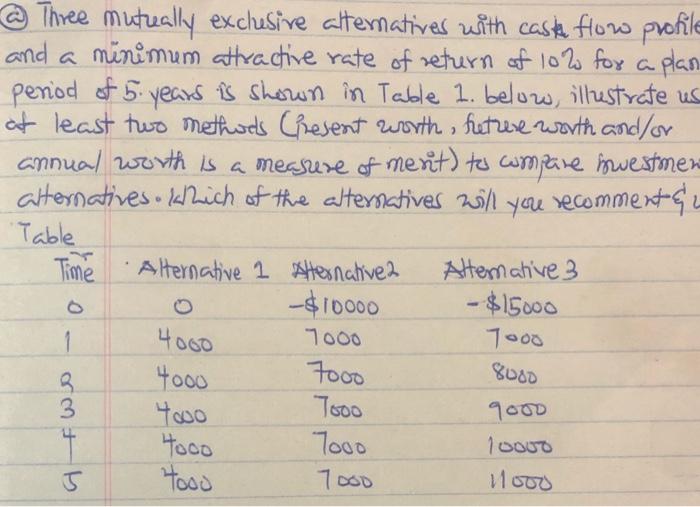 ⓐ Three mutually exclusive alternatives with cash flow profile
and a minimum attractive rate of return of 10% for a plan
period of 5. years is shown in Table 1. below, illustrate us
at least two methods (Present worth, future worth and/or
annual worth is a measure of merit) to compare investmen
alternatives. Which of the alternatives will you recomment &
Table
Time Alternative 1 Alternative2 Alternative 3
0 0 -$10000 -$15000
1 4000 7000 7000
2 4000 7000 8000
3 4000 7000 9000
4 4000 7000 10000
5 4000 7000 11000